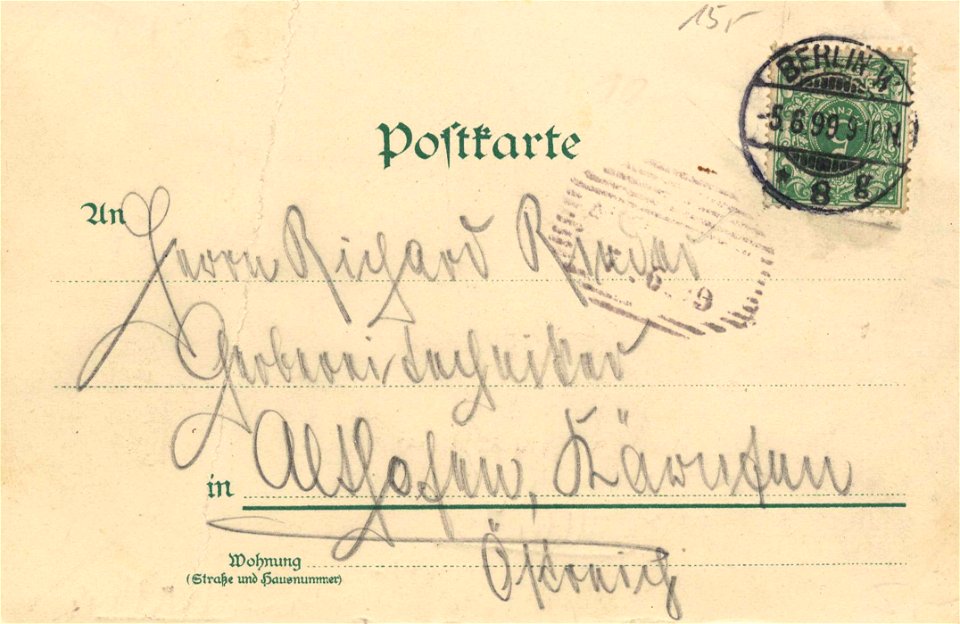 15,-
BERLIN W.
-5.6.99 9-10N
* 8 g
Postkarte
An Herrn Richard
Gerbereitechniker
in Althofen, Kärnten
Wohnung
(Straße und Hausnummer)
Östreich